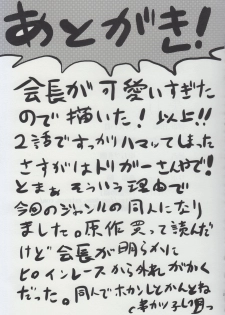 あとがき！
会長が可愛いすぎた
ので描いた！以上!!
２話ですっかりハマッてしまった
さすがはトリガーさんやで！
とまぁそういう理由で
今回のジャンルの同人になり
ました。原作買って読んだ
けど会長が明らかに
ヒロインレースから外れがかく
だった。同人でホカンしとかんとね